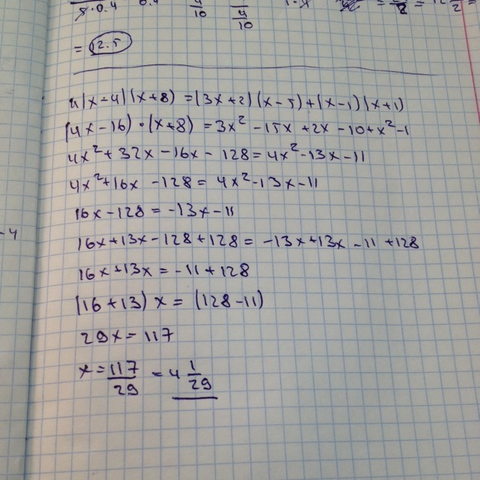 8·0.4 0.4 4/10 4/10
= 12.5
4(x-4)(x+8) = (3x+2)(x-5)+(x-1)(x+1)
(4x-16)·(x+8) = 3x²-15x+2x-10+x²-1
4x²+32x-16x-128 = 4x²-13x-11
4x²+16x-128 = 4x²-13x-11
16x-128 = -13x-11
16x+13x-128+128 = -13x+13x-11+128
16x+13x = -11+128
(16+13)x = (128-11)
29x = 117
x = 117/29 = 4 1/29
-4